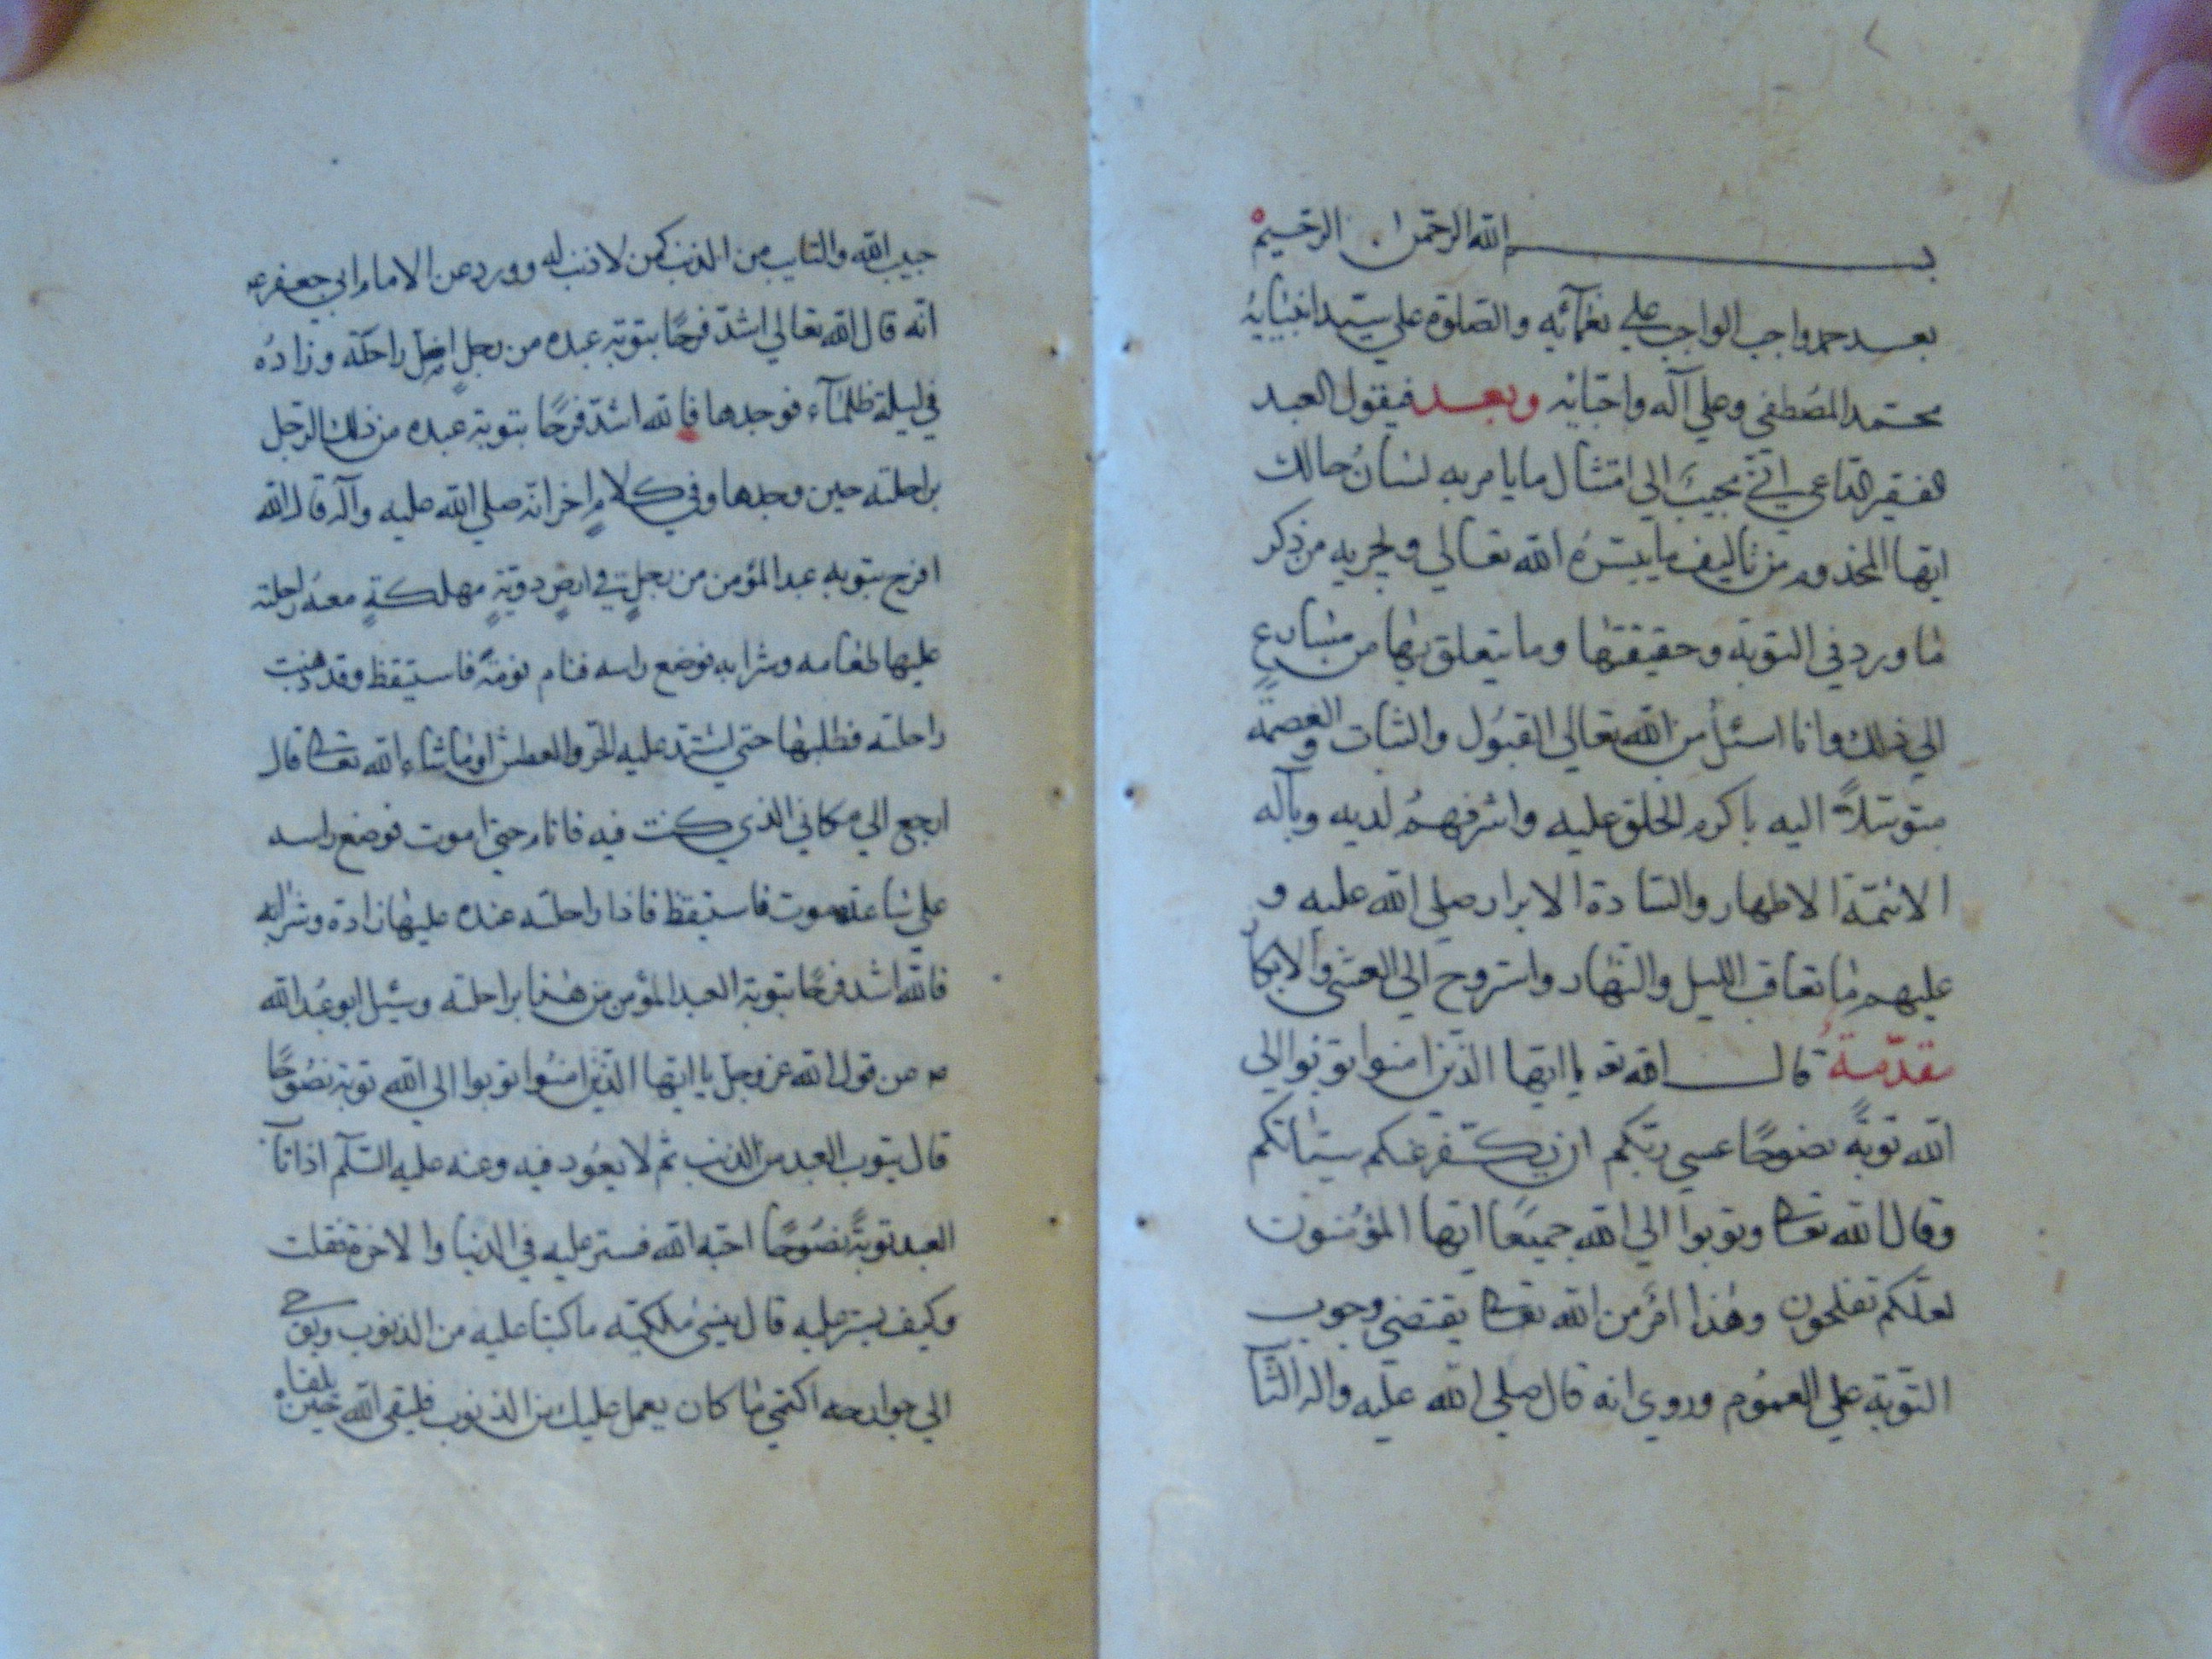 بسم الله الرحمن الرحيم
بعد حمد واجب الواجب علي نعمآئه والصلوة علي سيد انبيائه
محمد المصطفي وعلي آله واحبائه وبعد فيقول العبد
الفقير الداعي انّي مجيب الي امتثال ما يامر به لسان حالك
ايها المخدوم من تاليف ما ييسّره الله تعالي ويجريه من ذكر
ما ورد في التوبة وحقيقتها وما يتعلق بها من مسارع
الي ذلك وانا اسئل من الله تعالي القبول والثبات والعصمة
متوسّلاً اليه باكرم الخلق عليه واشرفهم لديه وبآله
الائمة الاطهار والسادة الابرار صلي الله عليه و
عليهم ما تعاقب الليل والنهار واستروح الي العشي والابكار
مقدّمة قال الله تع يا ايها الذين امنوا توبوا الي
الله توبةً نصوحًا عسي ربّكم ان يكفّر عنكم سيّئاتكم
وقال الله تعالى وتوبوا الي الله جميعًا ايها المؤمنون
لعلّكم تفلحون وهذا امر من الله تعالى يقتضي وجوب
التوبة علي العموم وروي انه قال صلي الله عليه واله التا
حبيب الله والتايب من الذنب كمن لا ذنب له وورد عن الامام ابي جعفر ع
انّه قال الله تعالي اشدّ فرحًا بتوبة عبده من رجلٍ اضلّ راحلته وزاده
في ليلة ظلمآء فوجدها فالله اشدّ فرحًا بتوبة عبده من ذلك الرّجل
براحلته حين وجدها وفي كلامٍ اخر انّه صلي الله عليه وآله قال الله
افرح بتوبة عبد المؤمن من رجلٍ في ارضٍ دويّةٍ مهلكةٍ معه راحلته
عليها طعامه وشرابه فوضع راسه فنام نومةً فاستيقظ وقد ذهبت
راحلته فطلبها حتي اشتد عليه الحرّ والعطش او ما شاء الله تعالى قال
ارجع الي مكاني الذي كنت فيه فانام حتي اموت فوضع راسه
علي ساعده ليموت فاستيقظ فاذا راحلته عنده عليها زاده وشرابه
فالله اشد فرحًا بتوبة العبد المؤمن من هذا براحلته وسئل ابو عبد الله
ع عن قول الله عز وجل يا ايها الذين امنوا توبوا الي الله توبة نصوحًا
قال يتوب العبد من الذنب ثم لا يعود فيه وعنه عليه السّلم اذا تاب
العبد توبةً نصوحًا احبّه الله فستر عليه في الدنيا والاخرة فقلت
وكيف يستر عليه قال ينسي ملكيه ما كتبا عليه من الذنوب ويوحي
الي جوارحه اكتمي ما كان يعمل عليك من الذنوب فيلقي الله حين يلقاه